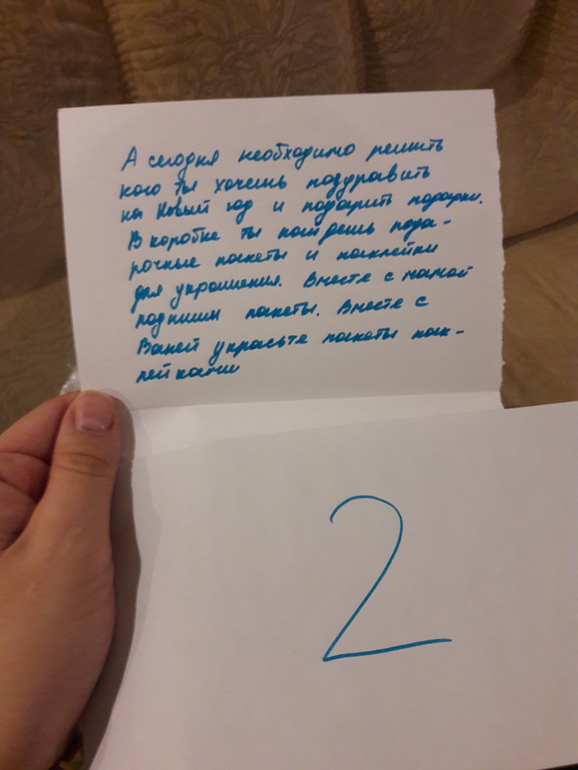 А сегодня необходимо решить
кого ты хочешь поздравить
на Новый год и подарить подарки.
В коробке ты найдешь пода-
рочные пакеты и наклейки
для украшения. Вместе с мамой
подпиши пакеты. Вместе с
Ваней украсьте пакеты нак-
лейками
2